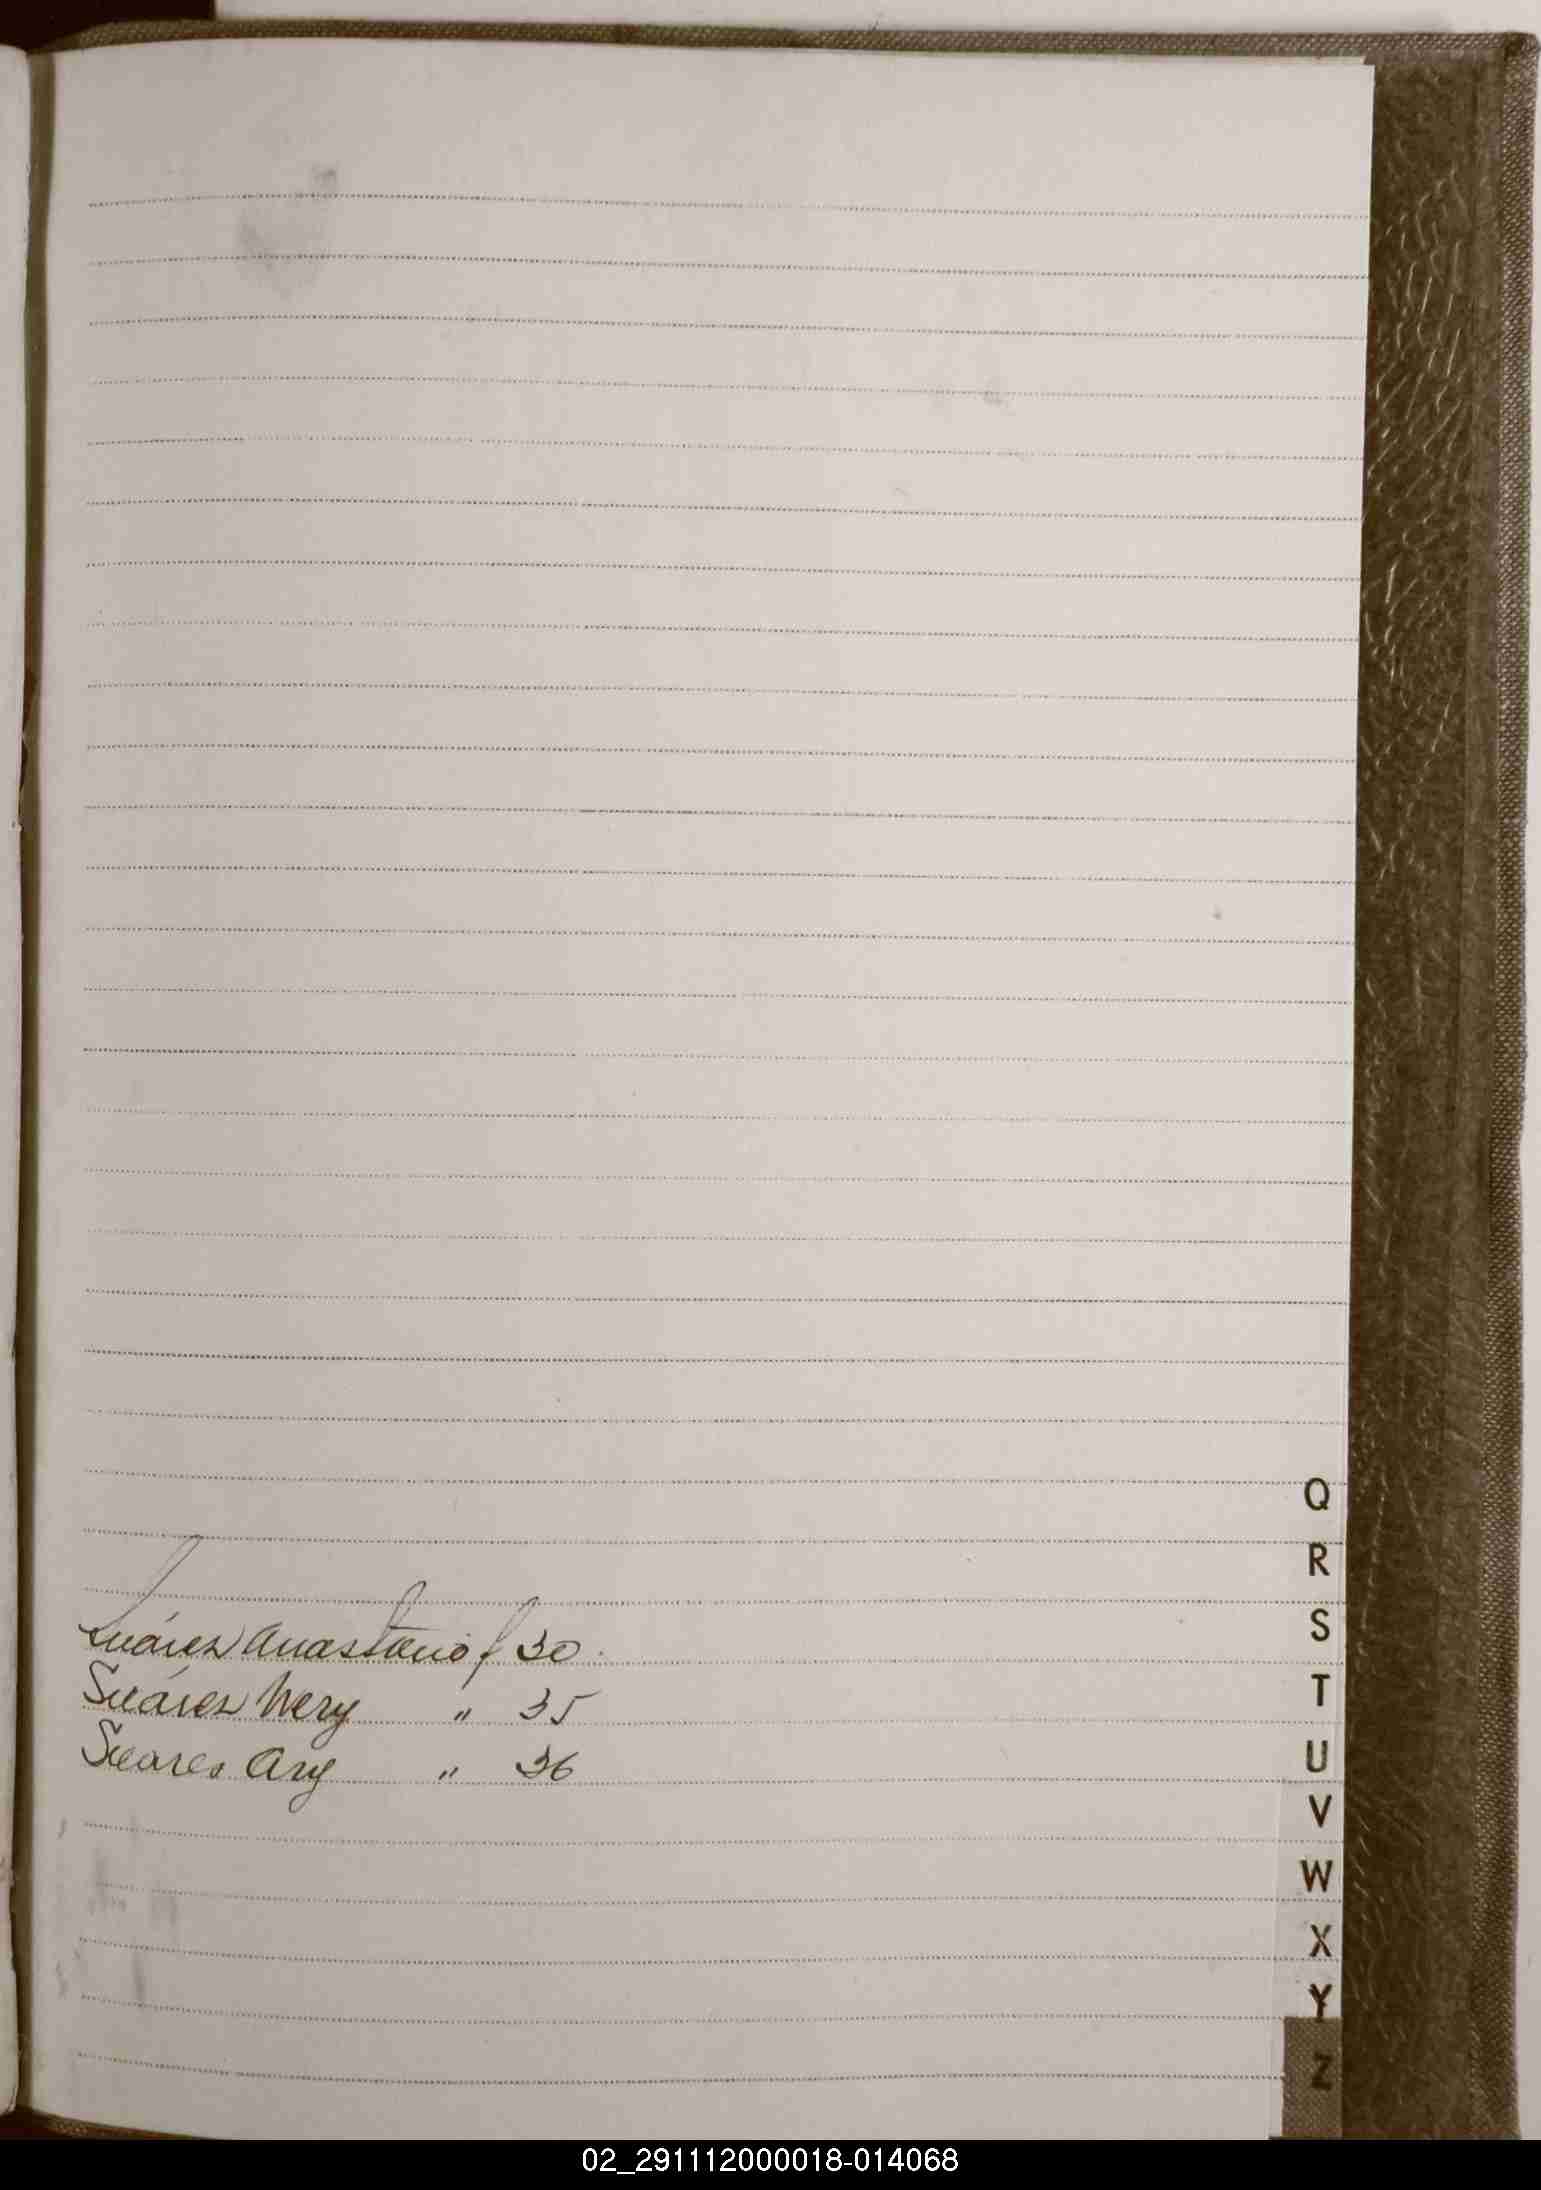 Q
R
S
T
U
V
W
X
Y
Z
Suárez Anastacio f 30
Suárez Nery " 35
Suares Ary " 36
02_291112000018-014068